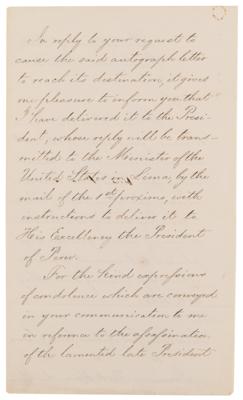 In reply to your request to
cause the said autograph letter
to reach its destination, it gives
me pleasure to inform you that
I have delivered it to the Presi-
dent, whose reply will be trans-
mitted to the Minister of the
United States in Lima, by the
mail of the 1st proximo, with
instructions to deliver it to
His Excellency the President
of Peru.
For the kind expressions
of condolence which are conveyed
in your communication to me
in reference to the assassination
of the lamented late President